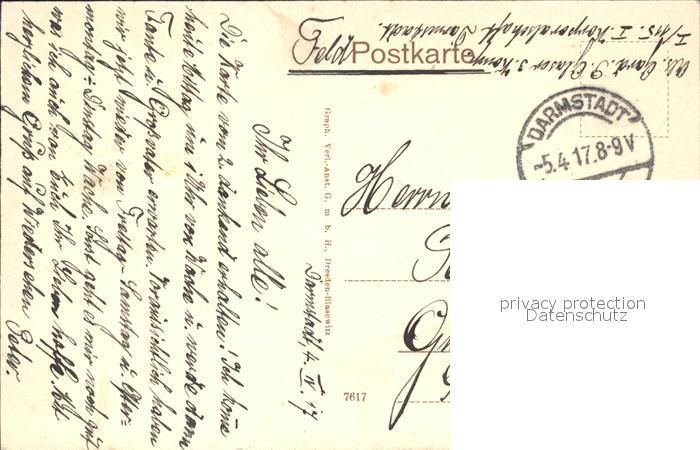 Feld Postkarte
Abs. Gard. P. Glaser 3. Komp.
I/115. I. Korporalschaft Darmstadt.
DARMSTADT
-5.4.17.8-9V
Herrn
7617
Graph. Verl.-Anst. G. m. b. H., Dresden-Blasewitz
Darmstadt, 4. IV. 17
Ihr Lieben alle!
Die Karte vom 2. dankend erhalten! Ich kome
heute Mittag um 1 Uhr von Wache u. werde dann
Tante u. Großvater erwarten. Voraussichtlich haben
wir jetzt wieder von Freitag - Samstag u. Oster-
montag - Dinstag Wache. Sonst geht es mir noch gut
was ich auch von Euch Ihr Lieben hoffe. Mit
herzlichem Gruß auf Wiedersehen
Peter.
privacy protection
Datenschutz